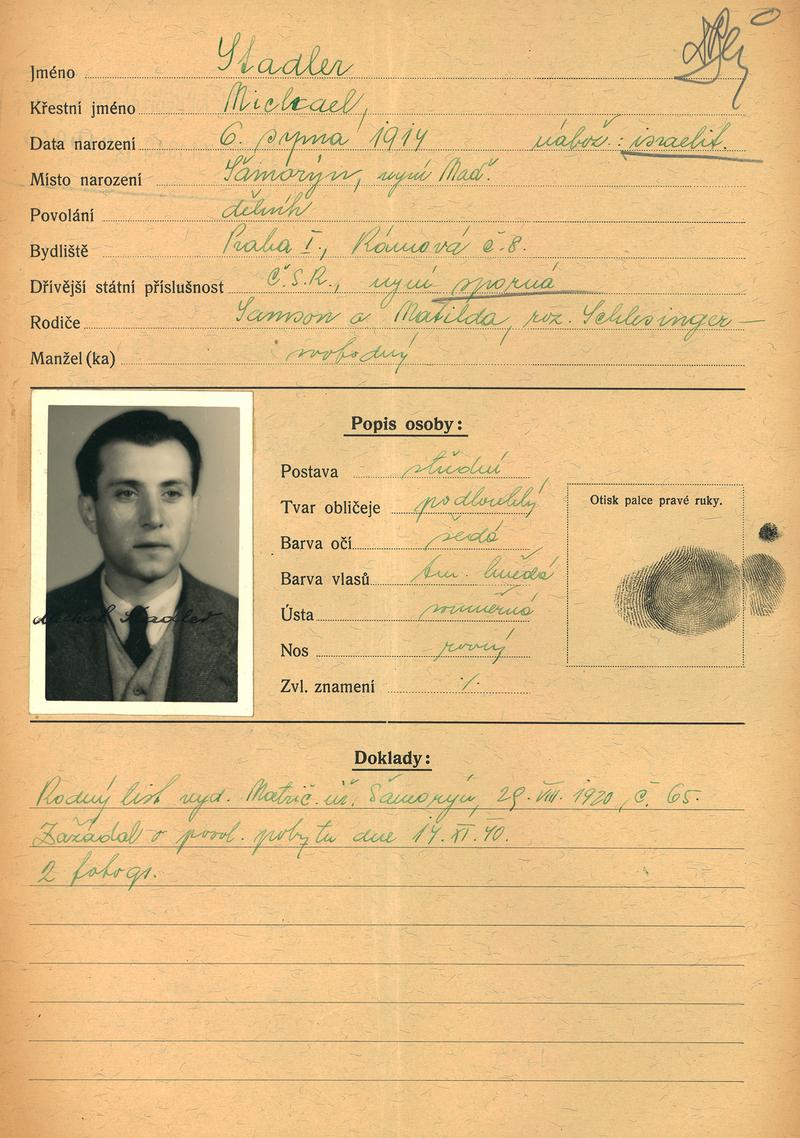 Jméno Stadler
Křestní jméno Michael,
Data narození 6. srpna 1914 nábož.: israelit.
Místo narození Šamorýn, nyní Maď.
Povolání dělník
Bydliště Praha I., Rámová č. 8.
Dřívější státní příslušnost Č.S.R., nyní sporná
Rodiče Samson a Matilda, roz. Schlesinger
Manžel (ka) svobodný
Popis osoby:
Postava střední
Tvar obličeje podlouhlý
Barva očí šedá
Barva vlasů tm. hnědá
Ústa souměrná
Nos rovný
Zvl. znamení ·/·
Otisk palce pravé ruky.
Michael Stadler
Doklady:
Rodný list vyd. Matrič. úř. Šamorýn, 29. VIII. 1920, č. 65.
Zažádal o povol. pobytu dne 14. XI. 40.
2 fotogr.